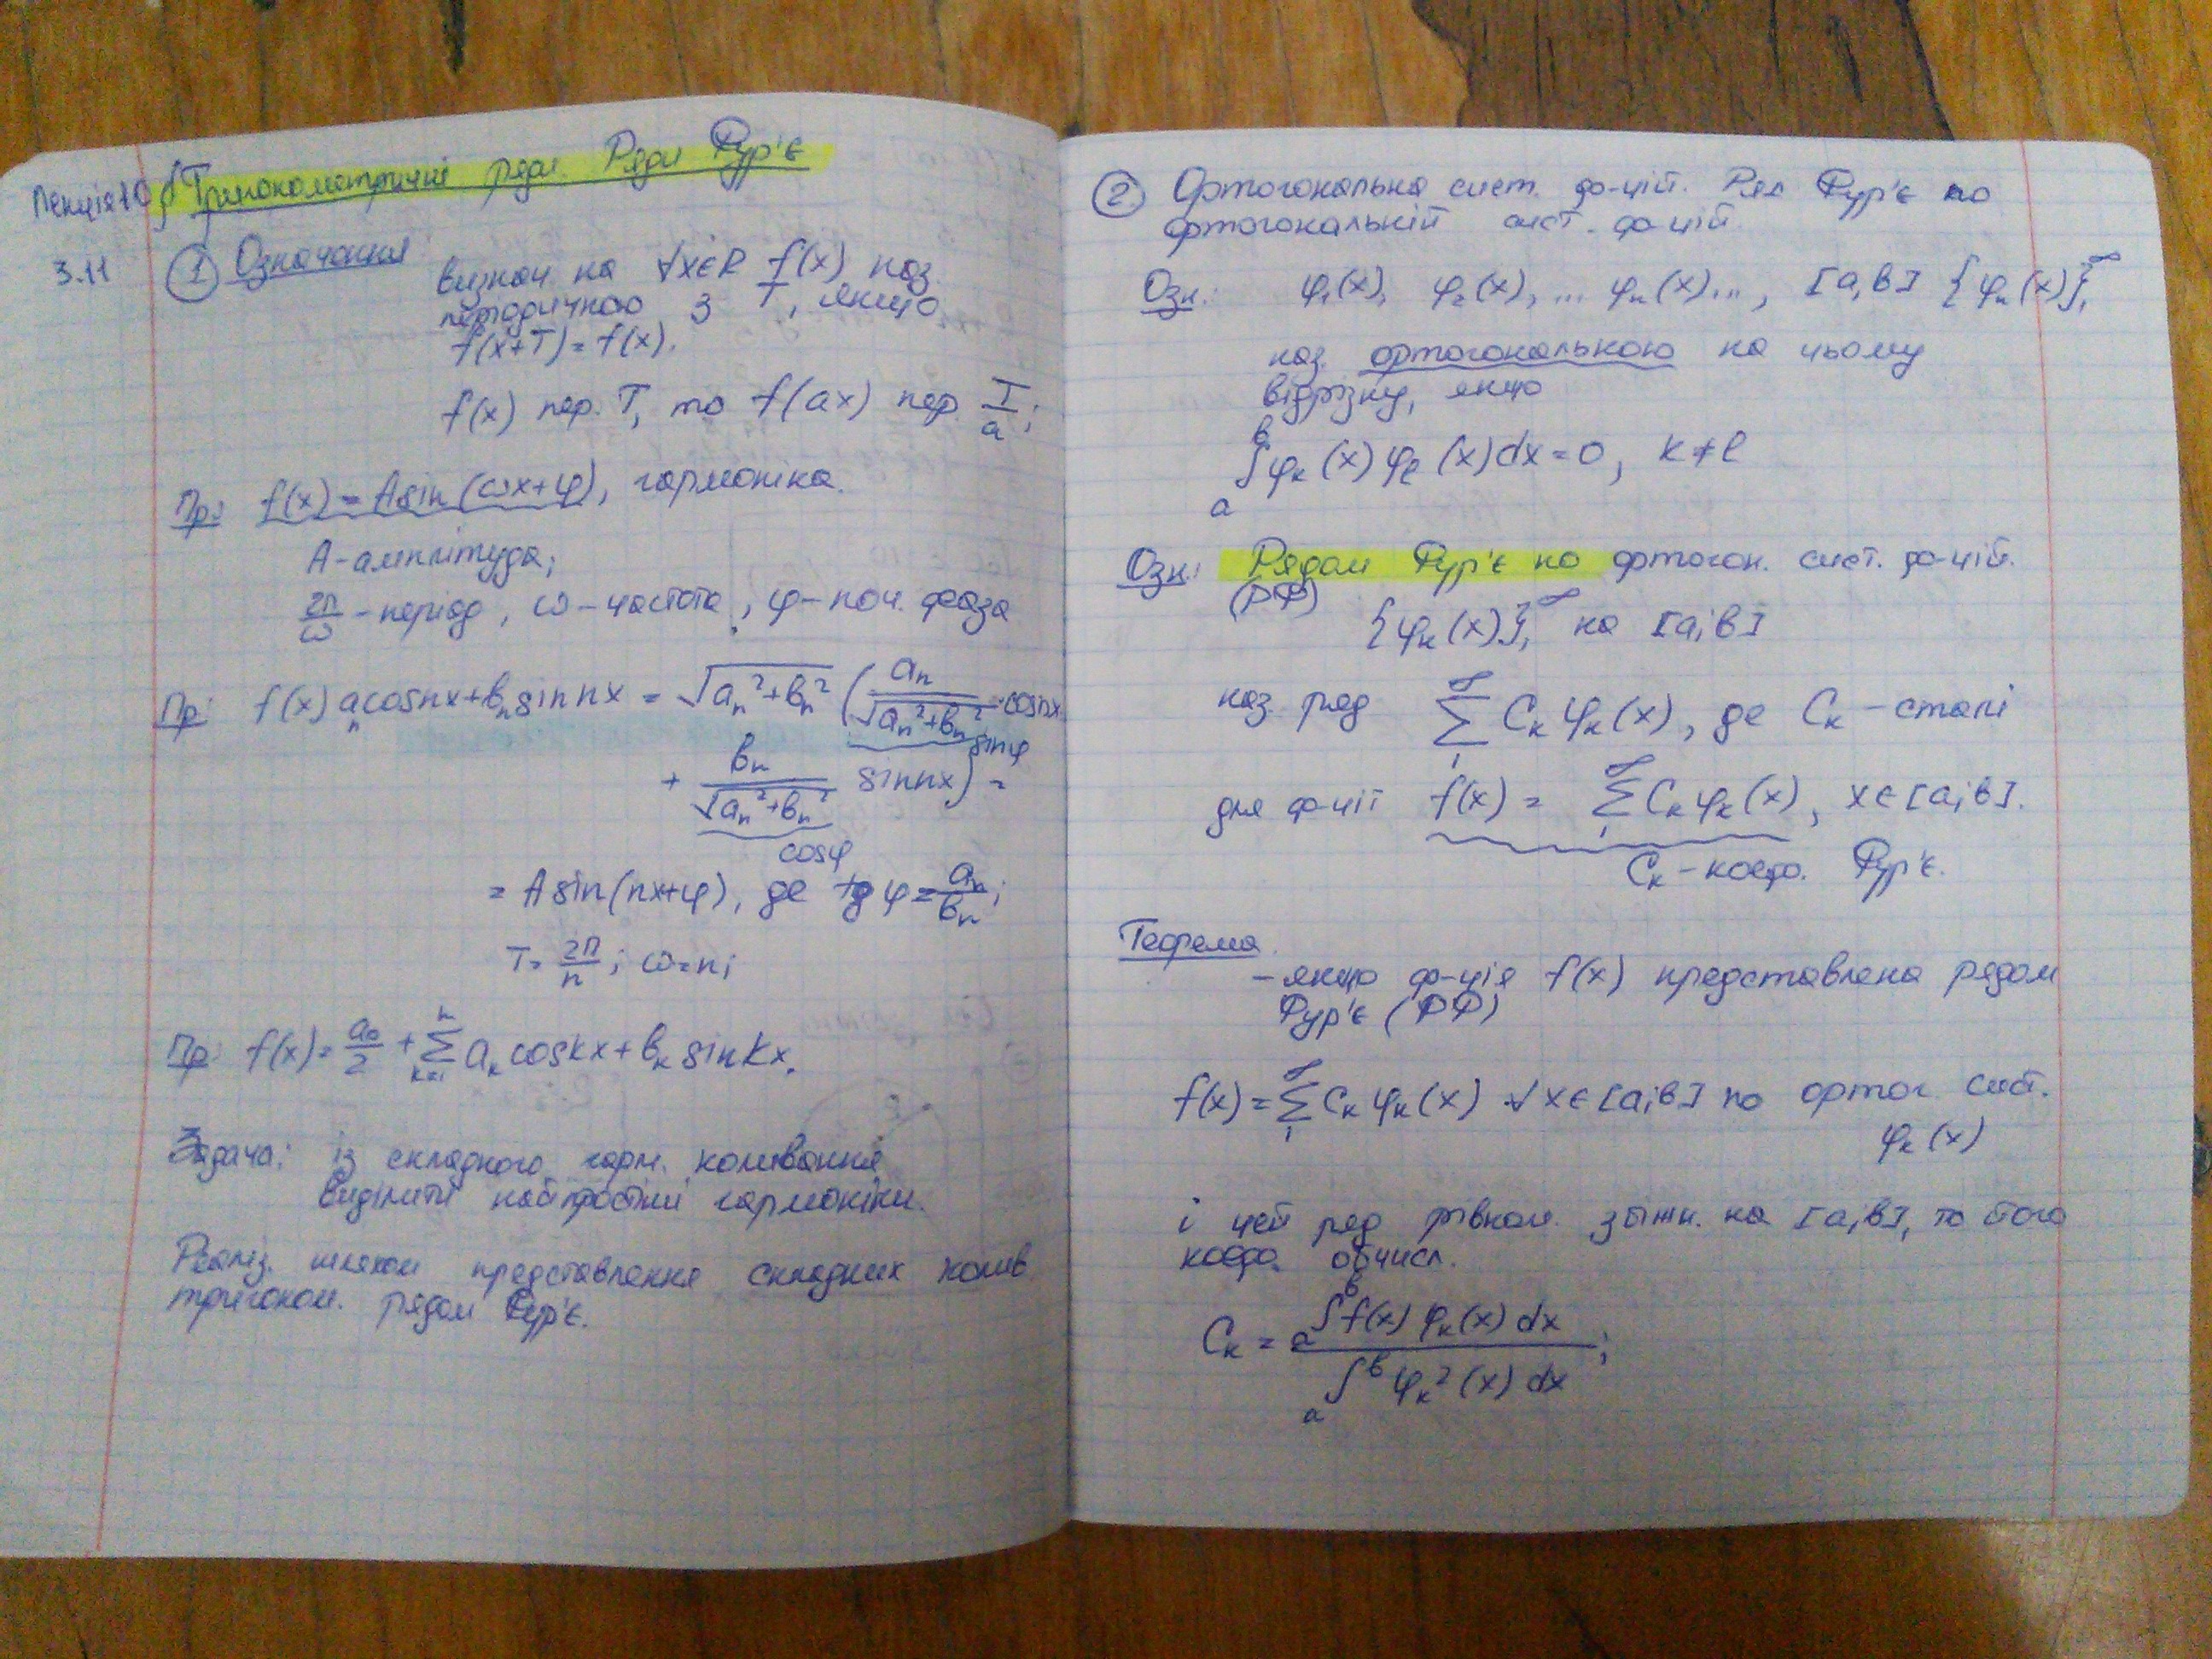 Лекція 10 § Тригонометричні ряди. Ряди Фур'є
3.11
① Означення
визнач на ∀x∈R f(x) наз.
періодичною з T, якщо
f(x+T) = f(x).
f(x) пер. T, то f(ax) пер. T/a;
Пр: f(x) = A sin(ωx+φ), гармоніка.
A - амплітуда;
2π/ω - період, ω - частота, φ - поч. фаза
Пр: f(x) aₙcosnx + bₙ sin nx = √(aₙ²+bₙ²) (aₙ/√(aₙ²+bₙ²) · cosnx
sinφ
+ bₙ/√(aₙ²+bₙ²) sinnx) =
cosφ
= A sin(nx+φ), де tg φ = aₙ/bₙ;
T = 2π/n; ω = n;
Пр: f(x) = a₀/2 + ∑ₖ₌₁ⁿ aₖ coskx + bₖ sin kx.
Задача: із складного гарм. коливання
виділити найпростіші гармоніки.
Реаліз. шляхом представлення складних колив
тригоном. рядом Фур'є.
② Ортогональна сист. ф-цій. Ряд Фур'є по
ортогональній сист. ф-цій.
Озн: φ₁(x), φ₂(x), ... φₙ(x)..., [a,b] {φₙ(x)}₁^∞
наз. ортогональною на цьому
відрізку, якщо
∫ₐᵇ φₖ(x) φₗ(x)dx = 0, k ≠ l
Озн: Рядом Фур'є по ортогон. сист. ф-цій.
(РФ)
{φₖ(x)}₁^∞ на [a,b]
наз. ряд ∑₁^∞ Cₖ φₖ(x), де Cₖ - сталі
для ф-ції f(x) = ∑₁^∞ Cₖ φₖ(x), x∈[a,b].
Cₖ - коеф. Фур'є.
Теорема
- якщо ф-ція f(x) представлена рядом
Фур'є (РФ)
f(x) = ∑₁^∞ Cₖ φₖ(x) ∀x∈[a,b] по ортог. сист.
φₖ(x)
і цей ряд рівном. збіжн. на [a,b], то його
коеф. обчисл.
Cₖ = ∫ₐᵇ f(x) φₖ(x) dx / ∫ₐᵇ φₖ²(x) dx;